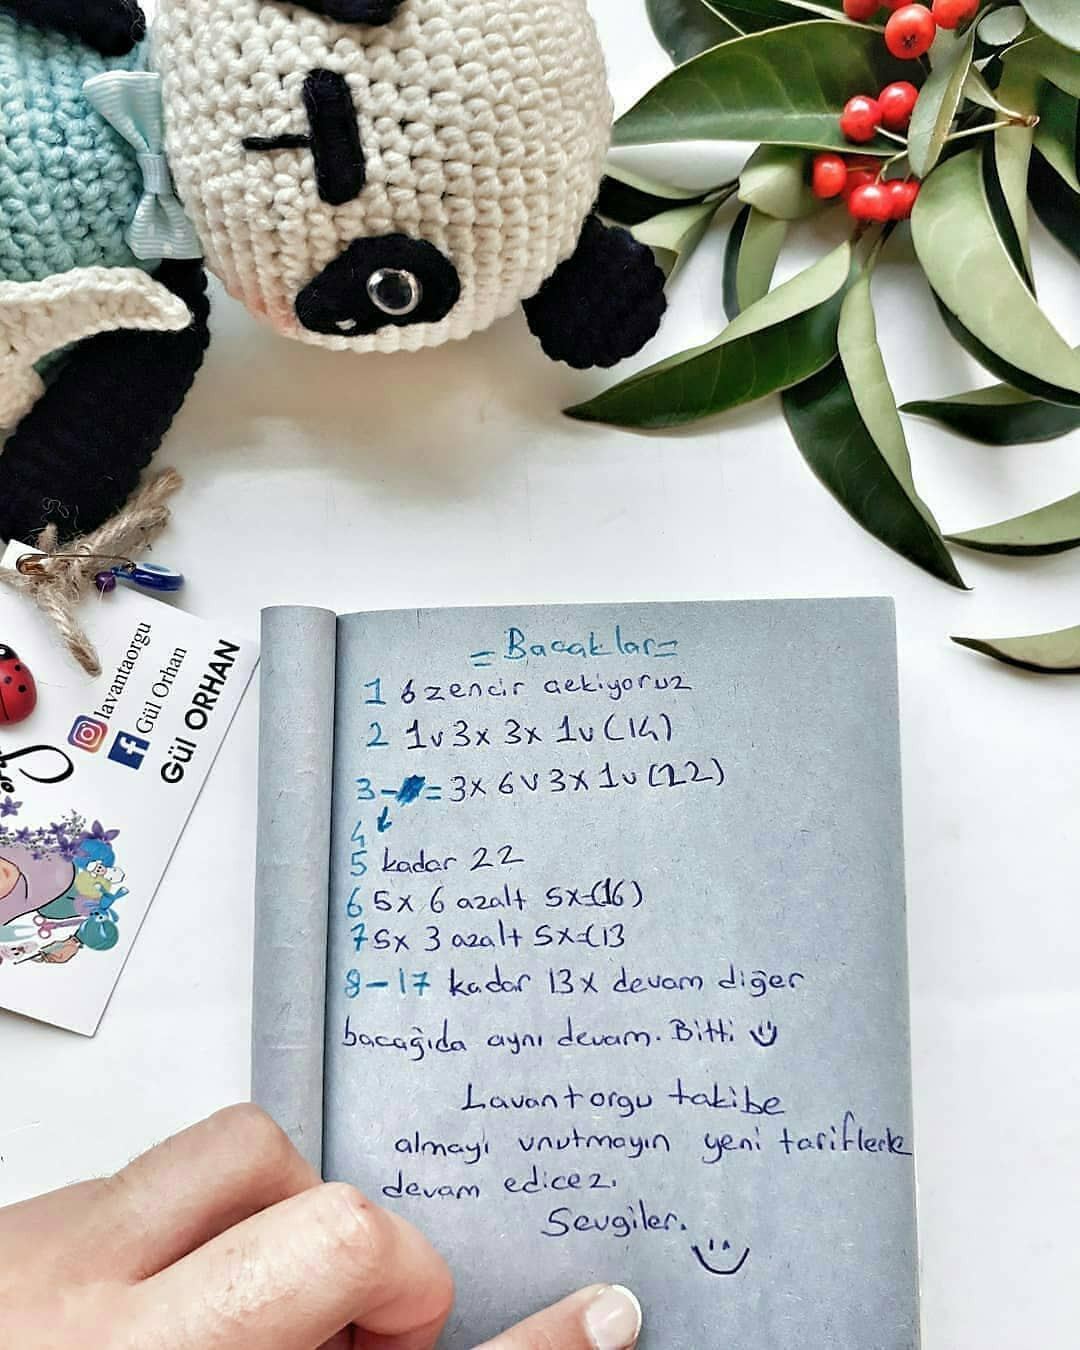 = Bacaklar =
1 6 zencir çekiyoruz
2 1v 3x 3x 1v (14)
3 - = 3x 6v 3x 1v (22)
4
5 kadar 22
6 5x 6 azalt 5x=(16)
7 5x 3 azalt 5x=(13
8-17 kadar 13x devam diğer
bacağıda aynı devam. Bitti
Lavantorgu takibe
almayı unutmayın yeni tariflerle
devam edicez.
Sevgiler.
lavantaorgu
Gül Orhan
Gül ORHAN